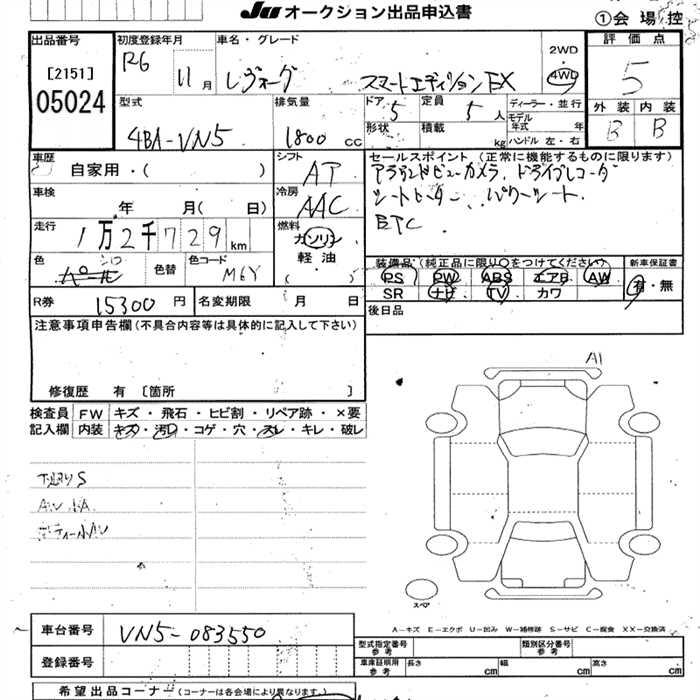 JU オークション出品申込書
①会場控
出品番号
[2151]
05024
初度登録年月
R6 11月
車名・グレード
レヴォーグ スマートエディションEX
2WD
・
4WD
評価点
5
外装 内装
B B
型式
4BA-VN5
排気量
1800 cc
ドア 5
定員 5人
形状
積載 kg
ディーラー・並行
モデル年式 年
ハンドル 左・右
車歴
自家用・( )
シフト
AT
セールスポイント (正常に機能するものに限ります)
アラウンドビューカメラ、ドライブレコーダ
シートヒーター、パワーシート
ETC
車検
年 月( 日)
冷房
AAC
走行
1万2千729km
燃料
ガソリン
軽油
( )
色
シロ
パール
色替
色コード
M6Y
5
装備品 (純正品に限り○をつけてください)
PS PW ABS エアB AW
SR ナビ TV カワ
新車保証書
有・無
R券
15300円
名変期限 月 日
後日品
注意事項申告欄(不具合内容等は具体的に記入して下さい)
修復歴 有 [箇所 ]
検査員記入欄
FW キズ・飛石・ヒビ割・リペア跡・×要
内装 キズ・汚れ・コゲ・穴・スレ・キレ・破レ
A1
スペア
A-キズ E-エクボ U-凹み W-補修跡 S-サビ C-腐食 XX-交換済
車台番号
VN5-083550
登録番号
型式指定番号
参考
類別区分番号
参考
車庫証明用
参考
長さ cm
幅 cm
高さ cm
希望出品コーナー (コーナーは各会場により異なります)